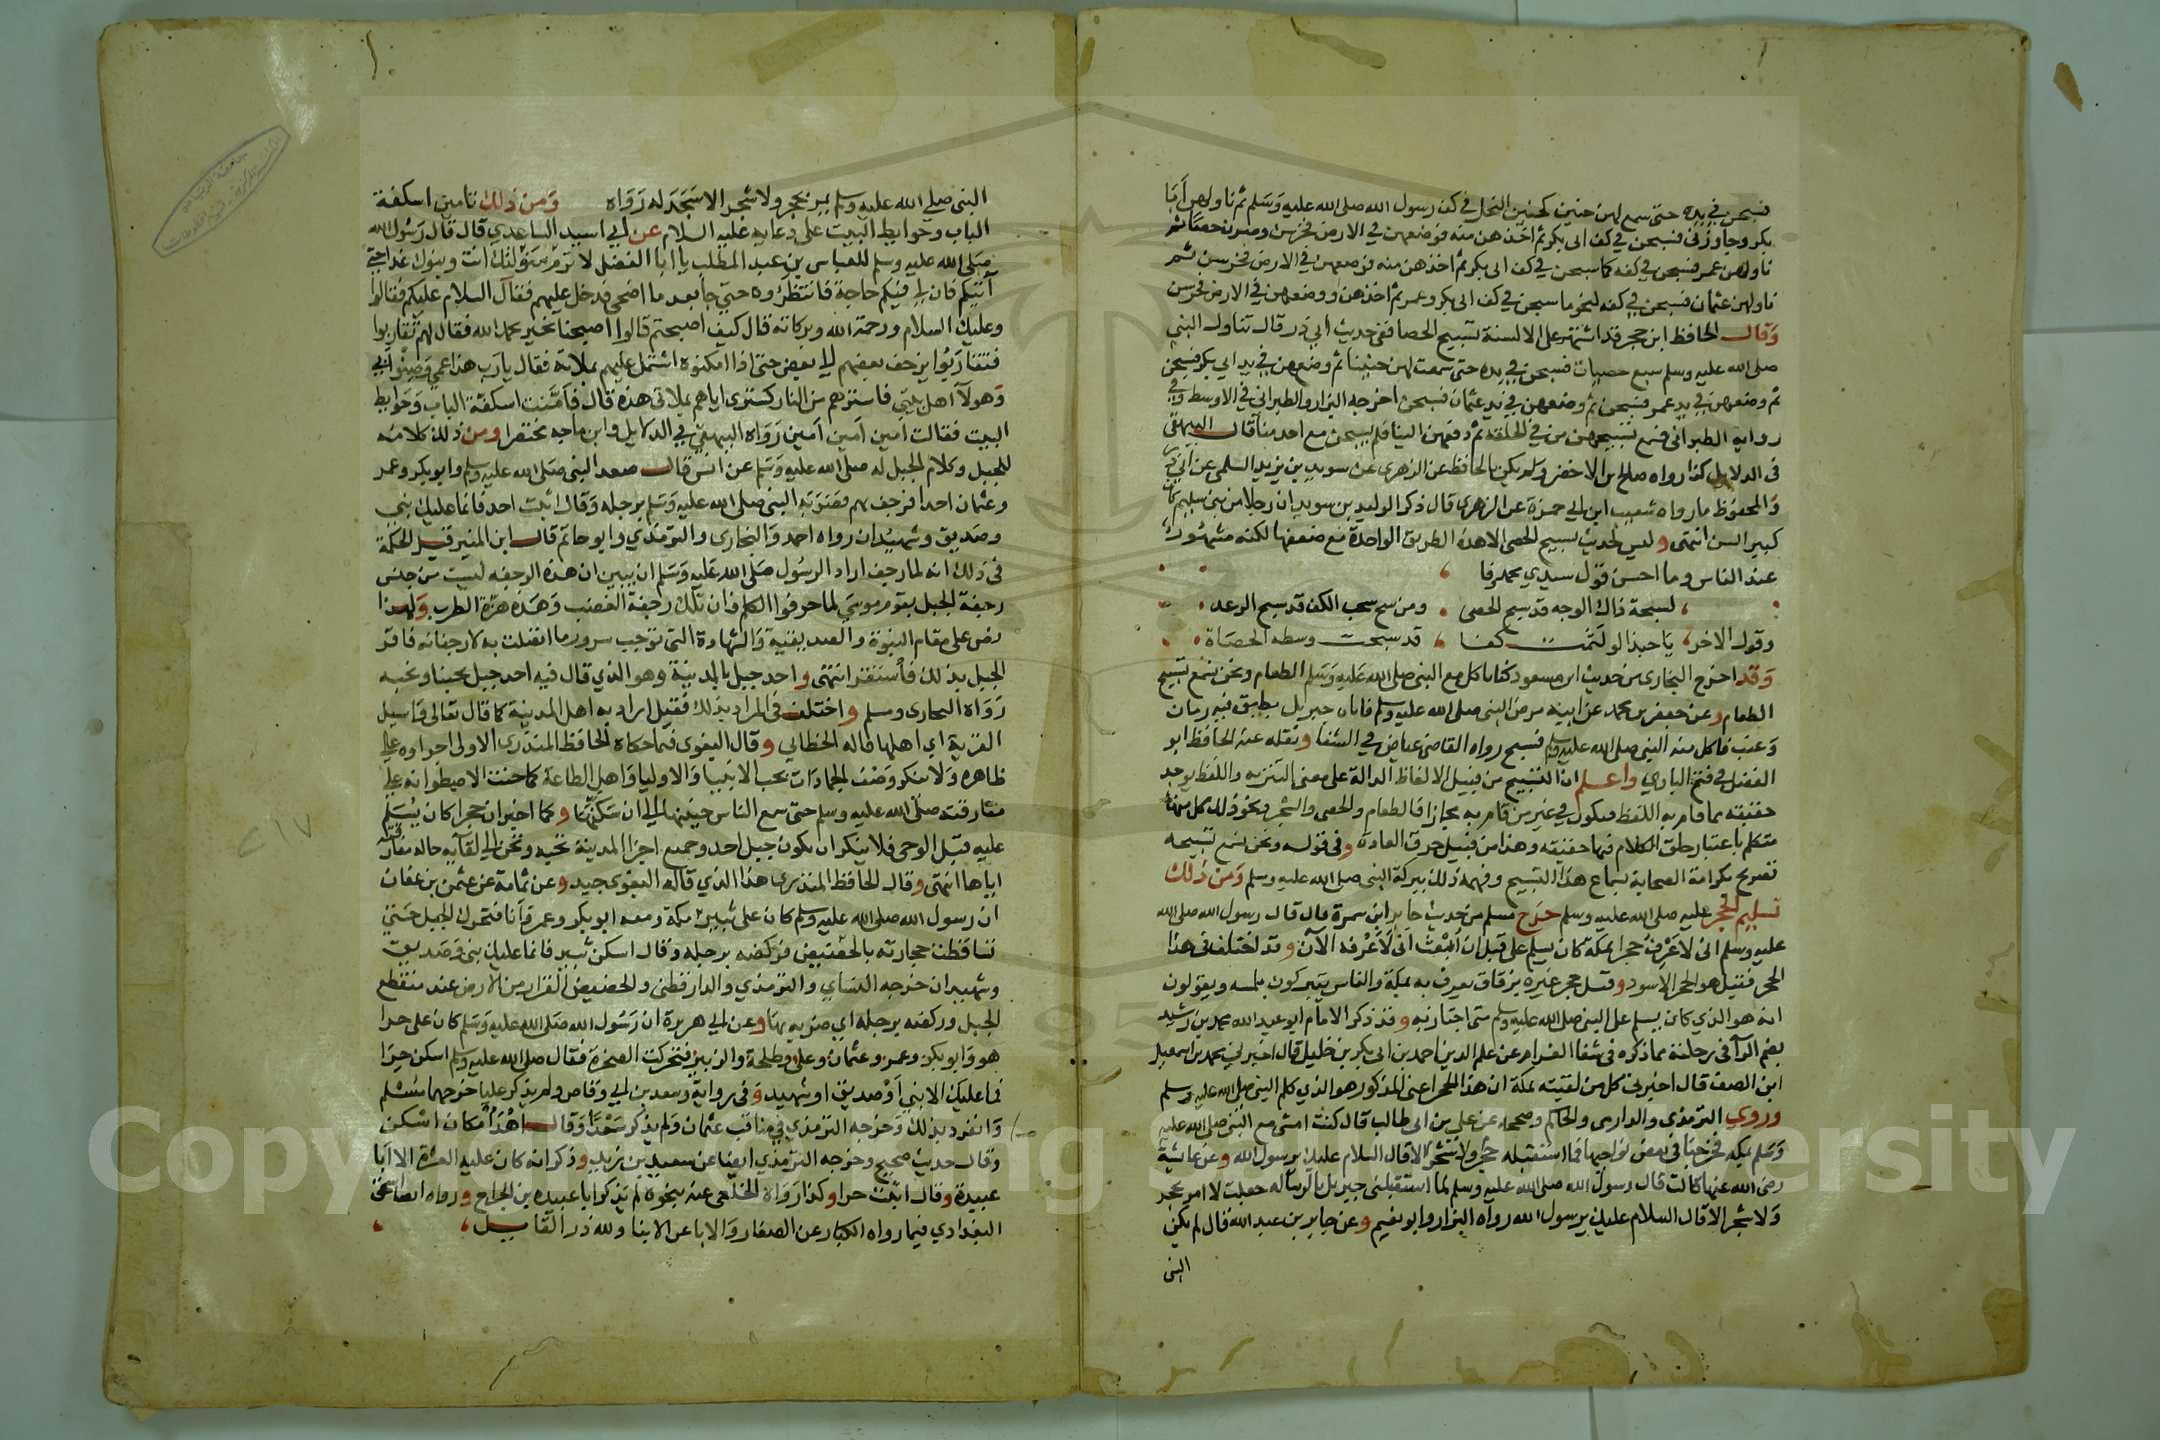 فسبحن في يده حتى سمع لهن حنين كحنين النحل في كف رسول الله صلى الله عليه وسلم ثم ناولهن أبا
بكر وجاوزني فسبحن في كف ابى بكر ثم اخذهن منه فوضعهن في الارض فخرسن وصرن حصا ثم
ناولهن عمر فسبحن في كفه كما سبحن في كف ابى بكر ثم اخذهن منه فوضعهن في الارض فخرسن ثم
ناولهن عثمان فسبحن في كفه لنحو ما سبحن في كف ابى بكر وعمر ثم اخذهن ووضعهن في الارض فخرسن
وقال الحافظ ابن حجر قد اشتهر على الالسنة تسبيح الحصا ففي حديث أبي ذر قال تناول النبي
صلى الله عليه وسلم سبع حصيات فسبحن في يده حتى سمعت لهن حنينا ثم وضعهن في يد ابي بكر فسبحن
ثم وضعهن في يد عمر فسبحن ثم وضعهن في يد عثمان فسبحن اخرجه البزار والطبرانى في الاوسط وفي
رواية الطبرانى فسمع تسبيحهن من في الحلقة ثم دفعهن الينا فلم يسبحن مع احد منا قال البيهقى
فى الدلايل كذا رواه صالح بن الاخضر ولم يكن بالحافظ عن الزهرى عن سويد بن يزيد السلمى عن ابي ذر
والمحفوظ ما رواه شعيب ابن ابي حمزة عن الزهرى قال ذكر الوليد بن سويد ان رجلا من بني سليم كان
كبير السن انتهى وليس لحديث تسبيح الحصى الا هذه الطريق الواحدة مع ضعفها لكنه مشهور
عند الناس وما احسن قول سيدي محمد وفا
لسبحة ذاك الوجه قد سبح الحصى ومن سح سحب الكف قد سبح الرعد
وقول الاخر يا حبذا لو لثمت كفا قد سبحت وسطه الحصاة
وقد اخرج البخارى من حديث ابن مسعود كنا ناكل مع النبى صلى الله عليه وسلم الطعام ونحن نسمع تسبيح
الطعام وعن جعفر بن محمد عن ابيه مرض النبى صلى الله عليه وسلم فاتاه جبريل بطبق فيه رمان
وعنب فاكل منه النبى صلى الله عليه وسلم فسبح رواه القاضى عياض في الشفا ونقله عنه الحافظ ابو
الفضل في فتح الباري واعلم ان التسبيح من قبيل الالفاظ الدالة على معنى التنزيه واللفظ يوجد
حقيقة مما قام به اللفظ فيكون في غير من قام به مجازا فالطعام والحصى والشجر ونحو ذلك كل منها
متكلم باعتبار خلق الكلام فيها حقيقة وهذا من قبيل خرق العادة وفى قوله ونحن نسمع تسبيحه
تصريح بكرامة الصحابة بسماع هذا التسبيح وفهمه وذلك ببركة النبى صلى الله عليه وسلم ومن ذلك
تسليم الحجر عليه صلى الله عليه وسلم خرج مسلم من حديث جابر ابن سمرة قال قال رسول الله صلى الله
عليه وسلم انى لاعرف حجرا بمكة كان يسلم على قبل ان أبعث انى لاعرفه الآن وقد اختلف في هذا
الحجر فقيل هو الحجر الاسود وقيل حجر غيره بزقاق يعرف به بمكة والناس يتبركون بلمسه ويقولون
انه هو الذي كان يسلم على النبى صلى الله عليه وسلم متى اجتاز به وقد ذكر الامام ابو عبد الله محمد بن رشيد
بضم الرآ في رحلته مما ذكره في شفا الغرام عن علم الدين احمد بن ابى بكر بن خليل قال اخبرني محمد بن اسمعيل
ابن الصيف قال اخبرني كل من لقيته بمكة ان هذا الحجر اعنى المذكور هو الذي كلم النبى صلى الله عليه وسلم
وروي الترمذى والدارمى والحاكم وصححه عن على بن ابى طالب قال كنت امشى مع النبى صلى الله عليه
وسلم بمكه فخرجنا في بعض نواحيها فما استقبله حجر ولا شجر الا قال السلام عليك يا رسول الله وعن عائشة
رضى الله عنها قالت قال رسول الله صلى الله عليه وسلم لما استقبلنى جبريل بالرسالة جعلت لا امر بحجر
ولا شجر الا قال السلام عليك يا رسول الله رواه البزار وابو نعيم وعن جابر بن عبد الله قال لم يكن
النبى
النبى صلى الله عليه وسلم يمر بحجر ولا شجر الا سجد له رواه ومن ذلك تامين اسكفة
الباب وحوايط البيت على دعايه عليه السلام عن أبي اسيد الساعدي قال قال رسول الله
صلى الله عليه وسلم للعباس بن عبد المطلب يا ابا الفضل لا ترم منزلك انت وبنوك غدا حتى
آتيكم فان لي فيكم حاجة فانتظروه حتى جا بعد ما اضحى فدخل عليهم فقال السلام عليكم فقالوا
وعليك السلام ورحمة الله وبركاته قال كيف اصبحتم قالوا اصبحنا بخير بحمد الله فقال لهم تقاربوا
فتقاربوا يزحف بعضهم الي بعض حتى اذا امكنوه اشتمل عليهم بملاته فقال يا رب هذا عمي وصنو أبي
وهولآ اهل بيتى فاسترهم من النار كسترى اياهم بملاتى هذه قال فأمنت اسكفة الباب وحوايط
البيت فقالت آمين آمين آمين رواه البيهقي في الدلايل وابن ماجه مختصرا ومن ذلك كلامه
للجبل وكلام الجبل له صلى الله عليه وسلم عن انس قال صعد النبى صلى الله عليه وسلم وابو بكر وعمر
وعثمان احدا فرجف بهم فضربه النبى صلى الله عليه وسلم برجله وقال اثبت احد فانما عليك نبى
وصديق وشهيدان رواه احمد والبخارى والترمذي وابو حاتم قال ابن المنير قيل الحكمة
فى ذلك انه لما رجف اراد الرسول صلى الله عليه وسلم ان يبين ان هذه الرجفه ليست من جنس
رجفة الجبل بقوم موسى لما حرفوا الكلم فان تلك رجفة الغضب وهذه هزة الطرب ولهذا
نص على مقام النبوة والصديقية والشهادة التى توجب سرور ما اتصلت به لا رجفانه فاقر
الجبل بذلك فاستقر انتهى واحد جبل بالمدينة وهو الذي قال فيه احد جبل يحبنا ونحبه
رواه البخارى ومسلم واختلف فى المراد بذلك فقيل اراد به اهل المدينة كما قال تعالى واسيل
القرية اي اهلها قاله الخطابي وقال البغوى فيما حكاه الحافظ المنذرى الاولى اجراوه على
ظاهره ولا ينكر وصف الجمادات بحب الانبيا والاوليا واهل الطاعة كما حنت الاسطوانه على
مفارقته صلى الله عليه وسلم حتى سمع الناس حنينها الى ان سكنها وكما اخبر ان حجرا كان يسلم
عليه قبل الوحى فلا ينكر ان يكون جبل احد وجميع اجزا المدينة تحبه وتحن الى لقآيه حالة مفارقته
اياها انتهى وقال الحافظ المنذرى هذا الذي قاله البغوى جيد وعن ثمامة عن عثمن بن عفان
ان رسول الله صلى الله عليه وسلم كان على ثبير مكة ومعه ابو بكر وعمر وأنا فتحرك الجبل حتى
تساقطت حجارته بالحضيض فركضه برجله وقال اسكن ثبير فانما عليك نبى وصديق
وشهيدان خرجه النساي والترمذي والدارقطنى والحضيض القرار من الارض عند منقطع
الجبل وركضه برجله اي ضربه بها وعن ابي هريرة ان رسول الله صلى الله عليه وسلم كان على حرا
هو وابو بكر وعمر وعثمان وعلى وطلحة والزبير فتحركت الصخرة فقال صلى الله عليه وسلم اسكن حرا
فما عليك الا نبى أو صديق او شهيد وفى رواية وسعد بن ابي وقاص ولم يذكر عليا خرجهما مسلم
وانفرد بذلك وخرجه الترمذي في مناقب عثمان ولم يذكر سعدا وقال اهدأ مكان اسكن
وقال حديث صحيح وخرجه الترمذي ايضا عن سعيد بن زيد وذكر انه كان عليه العشرة الا أبا
عبيدة وقال اثبت حرا وكذا رواه الخلعى عنه بنحوه لم يذكر ابا عبيده بن الجراح ورواه ايضا
البغدادي فيما رواه الكبار عن الصغار والابا عن الابنا ولله در القايل